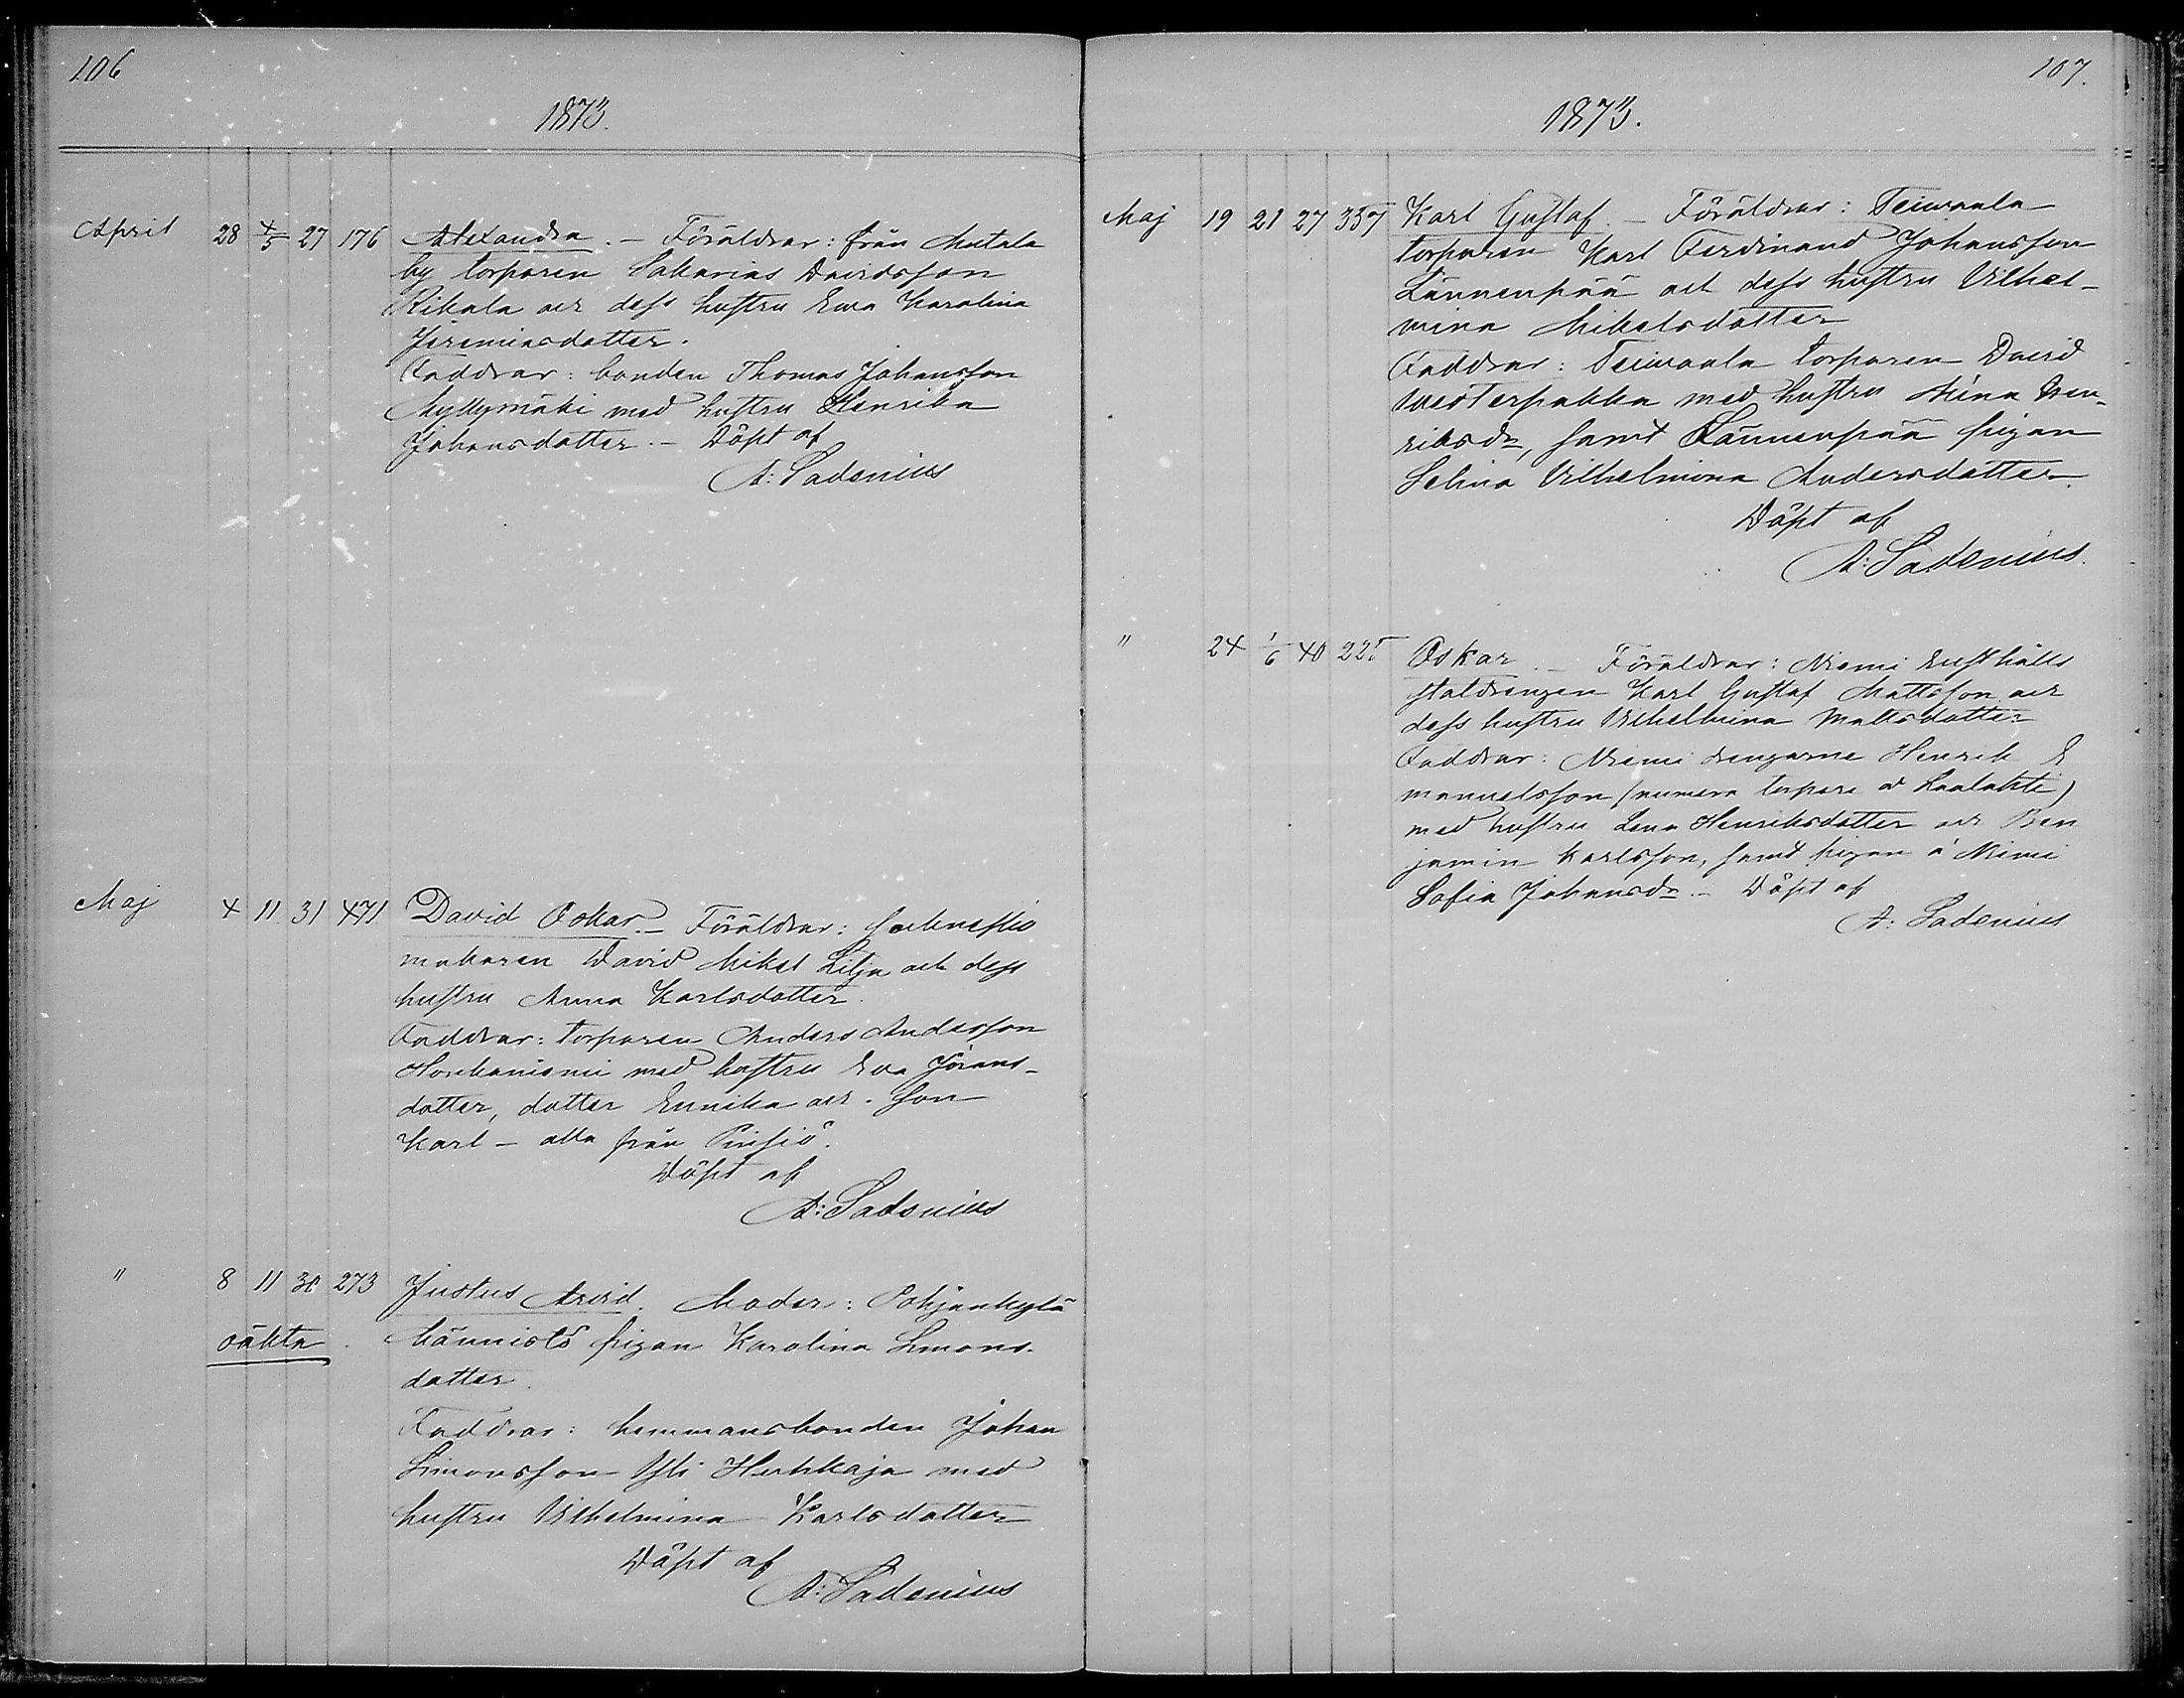 106
1873.
April 28 4/5 27 176 Alexandra. – Föräldrar: från Matala
by torparen Sakarias Davidsson
Rikala och dess hustru Eva Karolina
Jeremiasdotter.
Faddrar: bonden Thomas Johansson
Myllymäki med hustru Henrika
Johansdotter. – Döpt af
A: Ladenius
Maj 4 11 31 471 David Oskar. – Föräldrar:
makaren David Mikel Lilja och dess
hustru Anna Karlsdotter.
Faddrar: torparen Anders Andersson
med hustru Eva Görans-
dotter, dotter Eunika och son
Karl – alla från Pinsiö.
Döpt af
A: Ladenius
" 8 11 30 273 Justus Arvid. Moder: Pohjankylä
oäkta. Männistö pigan Karolina Simons-
dotter.
Faddrar: hemmansbonden Johan
Simonsson Yli Huhkaja med
hustru Vilhelmina Karlsdotter
Döpt af
A: Ladenius
107.
1873.
Maj 19 21 27 357 Karl Gustaf. – Föräldrar: Teivaala
torparen Karl Ferdinand Johansson
Lännenpää och dess hustru Vilhel-
mina Mikelsdotter
Faddrar: Teivaala torparen David
Westerpakka med hustru Mina Hen-
riksdr, samt Lännenpää pigan
Selina Vilhelmina Andersdotter.
Döpt af
A: Ladenius.
" 24 1/6 40 225 Oskar. – Föräldrar: Niemi rusthålls
staldrengen Karl Gustaf Mattsson och
dess hustru Vilhelmina Mattsdotter
Faddrar: Niemi drengarne Henrik E
manuelsson (numera torpare å Laalahti)
med hustru Lena Henriksdotter och Ben
jamin Karlsson, samt pigan å Niemi
Sofia Johansdr. – Döpt af
A: Ladenius